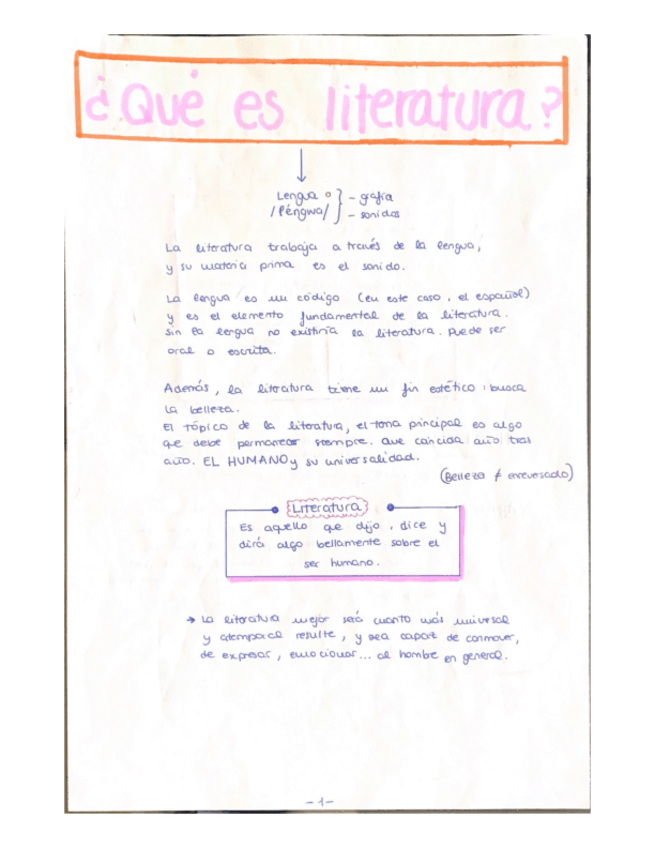 ¿Qué es literatura?
Lengua } - grafía
/léngwa/ } - sonidos
La literatura trabaja a través de la lengua,
y su materia prima es el sonido.
La lengua es un código (en este caso, el español)
y es el elemento fundamental de la literatura.
Sin la lengua no existiría la literatura. Puede ser
oral o escrita.
Además, la literatura tiene un fin estético: busca
la belleza.
El tópico de la literatura, el tema principal es algo
que debe permanecer siempre. Que coincida año tras
año. EL HUMANO y su universalidad.
(Belleza ≠ enrevesado)
Literatura
Es aquello que dijo, dice y
dirá algo bellamente sobre el
ser humano.
→ La literatura mejor será cuanto más universal
y atemporal resulte, y sea capaz de conmover,
de expresar, emocionar... al hombre en general.
-1-